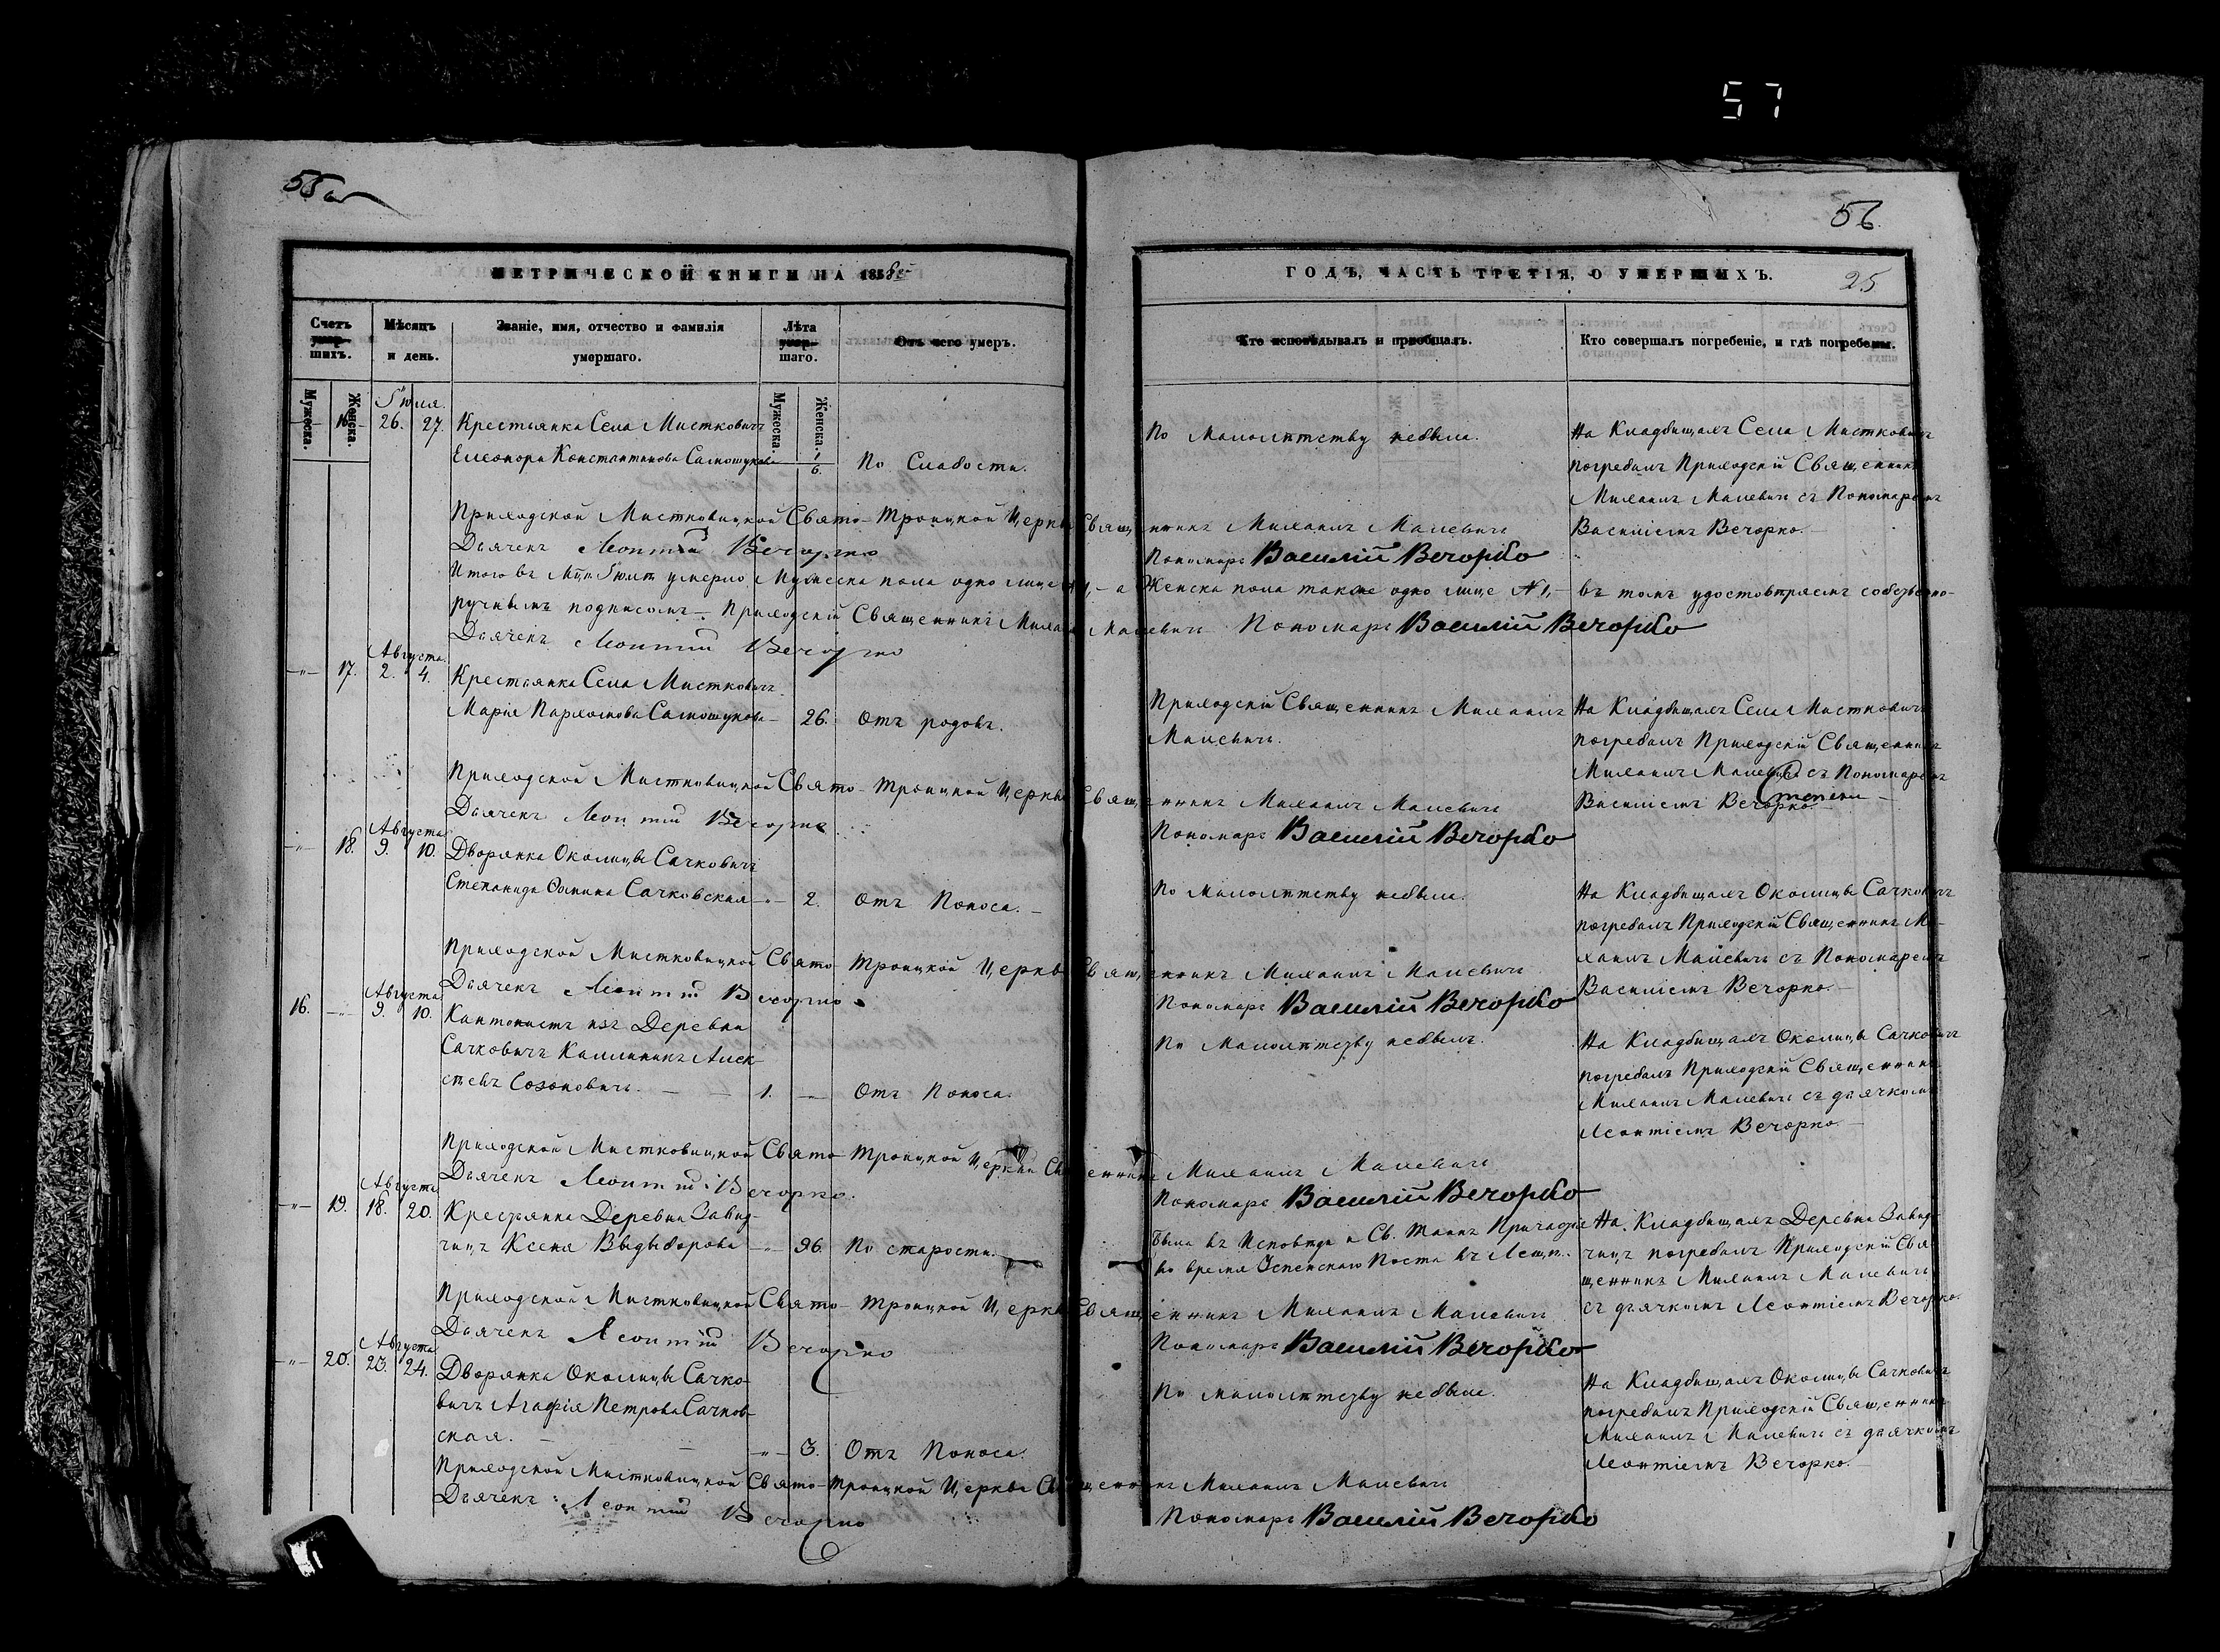 57
55
56
МЕТРИЧЕСКОЙ КНИГИ НА 1858й
ГОДЪ, ЧАСТЬ ТРЕТІЯ, О УМЕРШИХЪ.
25
Счетъ умер- шихъ.
Мѣсяцъ и день.
Званіе, имя, отчество и фамилія умершаго.
Лѣта умер- шаго.
Отъ чего умеръ.
Кто исповѣдывалъ и приобщалъ.
Кто совершалъ погребеніе, и гдѣ погребены.
Мужеска.
Женска.
Мужеска.
Женска.
Іюля.
16 26. 27. Крестьянка Села Мистковичъ
Елеонора Константинова Самошукова 1/6. По Слабости.
По малолѣтству небыла.
На Кладбищахъ Села Мистковичъ
погребалъ Приходскій Священникъ
Михаилъ Малевичъ съ Пономаремъ
Василіемъ Вечорко.
Приходской Мистковицкой Свято-Троицкой Церкви Священникъ Михаилъ Малевичъ
Дьячекъ Леонтій Вечорко
Пономарь Василій Вечорко
Итого въ Мцѣ Іюлѣ умерло Мужеска пола одно лице №1,- а Женска пола также одно лице №1,- въ томъ удостовѣряемъ собственно-
ручнымъ подписомъ - Приходскій Священникъ Михаилъ Малевичъ Пономарь Василій Вечорко
Дьячекъ Леонтій Вечорко
Августа
17. 2. 4. Крестьянка Села Мистковичъ
Марія Пархомова Самошукова - 26. Отъ родовъ.
Приходскій Священникъ Михаилъ
Малевичъ.
На Кладбищахъ Села Мистковичъ
погребалъ Приходскій Священникъ
Михаилъ Малевичъ съ Пономаремъ
Василіемъ Вечорко.
Приходской Мистковицкой Свято-Троицкой Церкви Священникъ Михаилъ Малевичъ
Дьячекъ Леонтій Вечорко
Пономарь Василій Вечорко
Августа
18. 9. 10. Дворянка Околицы Сачковичъ
Степанида Сачковская - 2. Отъ Поноса. -
По малолѣтству небыла.
На Кладбищахъ Околицы Сачковичъ
погребалъ Приходскій Священникъ Ми-
хаилъ Малевичъ съ Пономаремъ
Василіемъ Вечорко.
Приходской Мистковицкой Свято-Троицкой Церкви Священникъ Михаилъ Малевичъ
Дьячекъ Леонтій Вечорко
Пономарь Василій Вечорко
Августа
16. 9. 10. Кантонистъ изъ Деревни
Сачковичъ Каллиникъ Алек-
сѣевъ Созоновичъ. - 1. - Отъ Поноса.
По Малолѣтству небылъ.
На Кладбищахъ Околицы Сачковичъ
погребалъ Приходскій Священникъ
Михаилъ Малевичъ съ дьячкомъ
Леонтіемъ Вечорко.
Приходской Мистковицкой Свято-Троицкой Церкви Священникъ Михаилъ Малевичъ
Дьячекъ Леонтій Вечорко.
Пономарь Василій Вечорко
Августа
19. 18. 20. Крестьянка Деревни Завид-
чицъ Ксеня Выдыборова - 96. По старости.
Была въ Исповѣди и Св. Таинъ
во время Успенскаго Поста
На Кладбищахъ Деревни Завид-
чицъ погребалъ Приходскій Свя-
щенникъ Михаилъ Малевичъ
съ дьячкомъ Леонтіемъ Вечорко.
Приходской Мистковицкой Свято-Троицкой Церкви Священникъ Михаилъ Малевичъ
Дьячекъ Леонтій Вечорко
Пономарь Василій Вечорко
Августа
20. 23. 24. Дворянка Околицы Сачко-
вичъ Агафія Петрова Сачков-
ская. - 3. Отъ Поноса.
По малолѣтству небыла.
На Кладбищахъ Околицы Сачковичъ
погребалъ Приходскій Священникъ
Михаилъ Малевичъ съ дьячкомъ
Леонтіемъ Вечорко. -
Приходской Мистковицкой Свято-Троицкой Церкви Священникъ Михаилъ Малевичъ
Дьячекъ Леонтій Вечорко
Пономарь Василій Вечорко